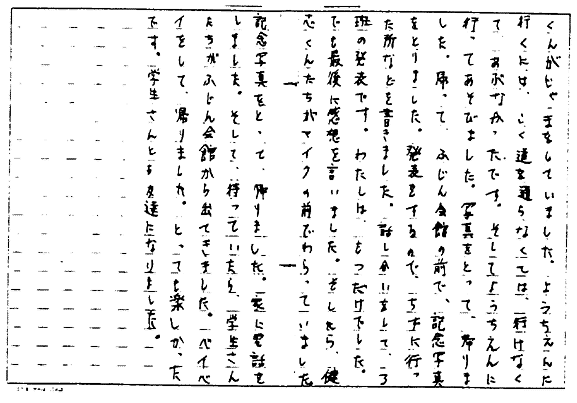 くんがじゃまをしていました。ようちえんに
行くには、こく道を通らなくては、行けなく
て、あぶなかったです。そしてようちえんに
行ってあそびました。写真をとって、帰りま
した。帰って、ふじん会館の前で、記念写真
をとりました。発表をするので、ちずに行っ
た所などを書きました。話しかいをして、3
班の発表です。わたしは、もつだけでした。
でも最後に感想を言いました。そしたら、健
志くんたちがマイクの前でわらっていました
記念写真をとって、帰りました。家に電話を
しました。そして、待っていたら、学生さん
たちがふじん会館から出てきました。バイバ
イをして、帰りました。とっても楽しかった
です。学生さんとも友達になりました。